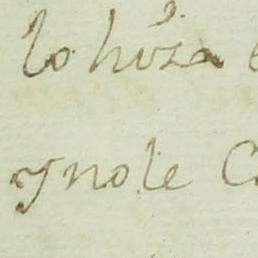 lo hiza
y no le C